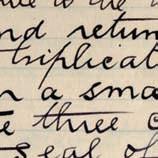 nd return
triplicat
n a sma
e three c
seal of